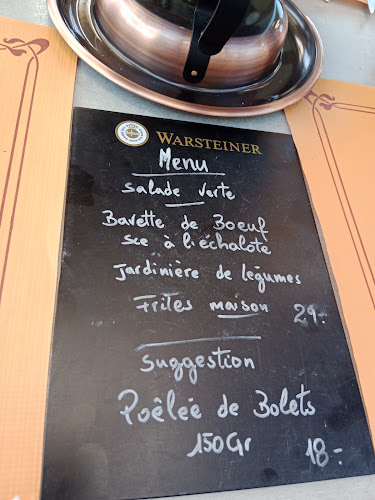 WARSTEINER
Menu
Salade verte
Bavette de Boeuf
sce à l'échalote
Jardinière de légumes
Frites maison 29.-
Suggestion
Poêlée de Bolets
150Gr 18.-